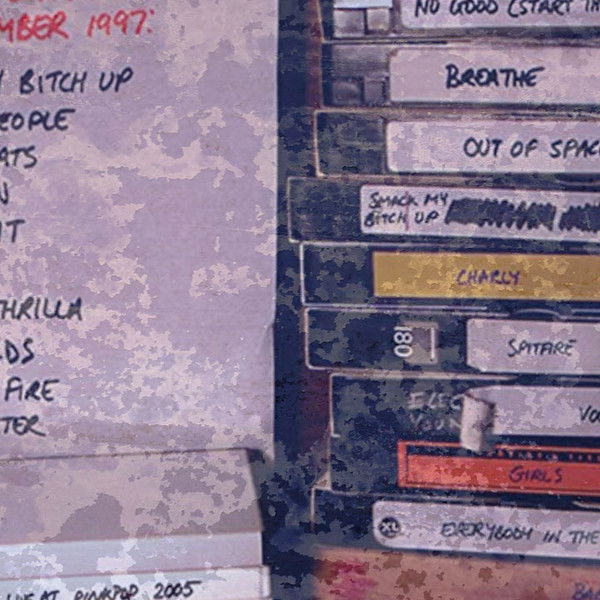 MBER 1997:
BITCH UP
EOPLE
ATS
N
IT
THRILLA
LDS
FIRE
TER
LIVE AT PINKPOP 2005
NO GOOD (START TH
BREATHE
OUT OF SPAC
SMACK MY
BITCH UP
CHARLY
180
SPITFIRE
ELEC
VO
GIRLS
XL
EVERYBODY IN THE
BA